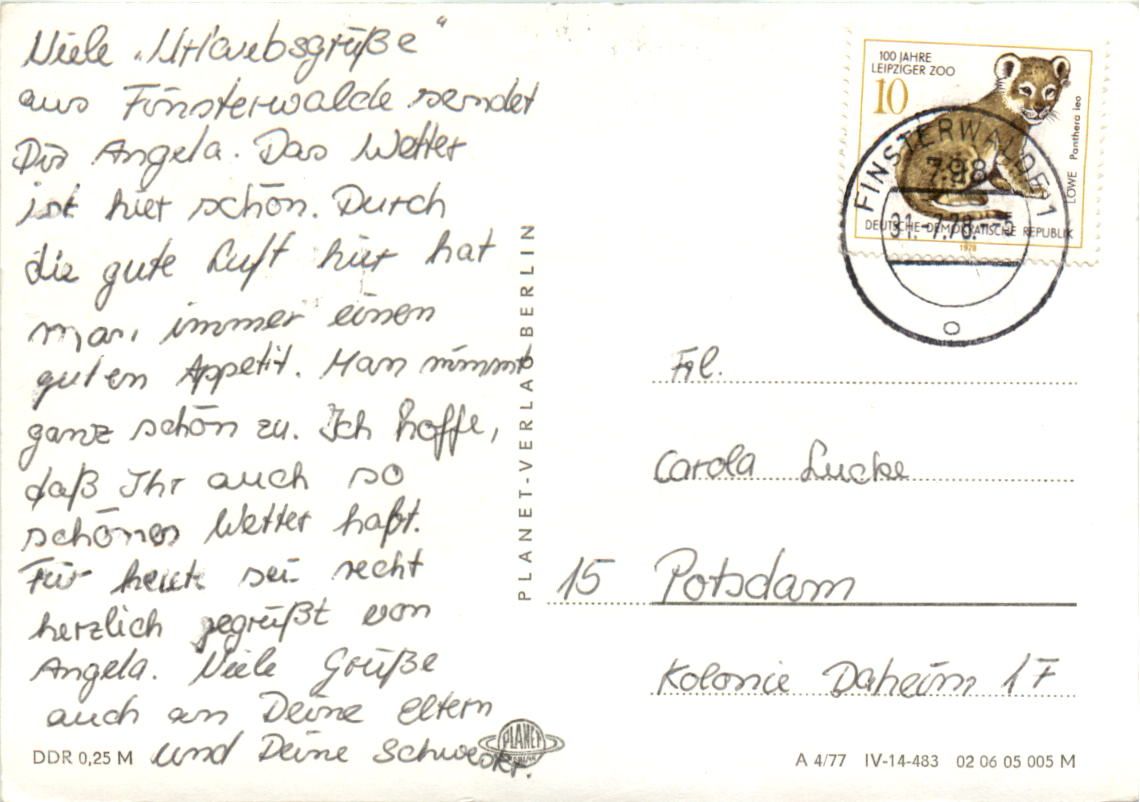 Viele „Urlaubsgrüße“
aus Finsterwalde sendet
Dir Angela. Das Wetter
ist hier schön. Durch
die gute Luft hier hat
man immer einen
guten Appetit. Man nimmt
ganz schön zu. Ich hoffe,
daß Ihr auch so
schönes Wetter habt.
Für heute sei recht
herzlich gegrüßt von
Angela. Viele Grüße
auch an Deine Eltern
und Deine Schwester.
DDR 0,25 M
PLANET-VERLAG BERLIN
PLANET
100 JAHRE
LEIPZIGER ZOO
10
LÖWE Panthera leo
DEUTSCHE DEMOKRATISCHE REPUBLIK
1978
FINSTERWALDE 1
798
31.-7.78.-5
o
Frl.
Carola Lucke
15 Potsdam
Kolonie Daheim 1F
A 4/77 IV-14-483 02 06 05 005 M